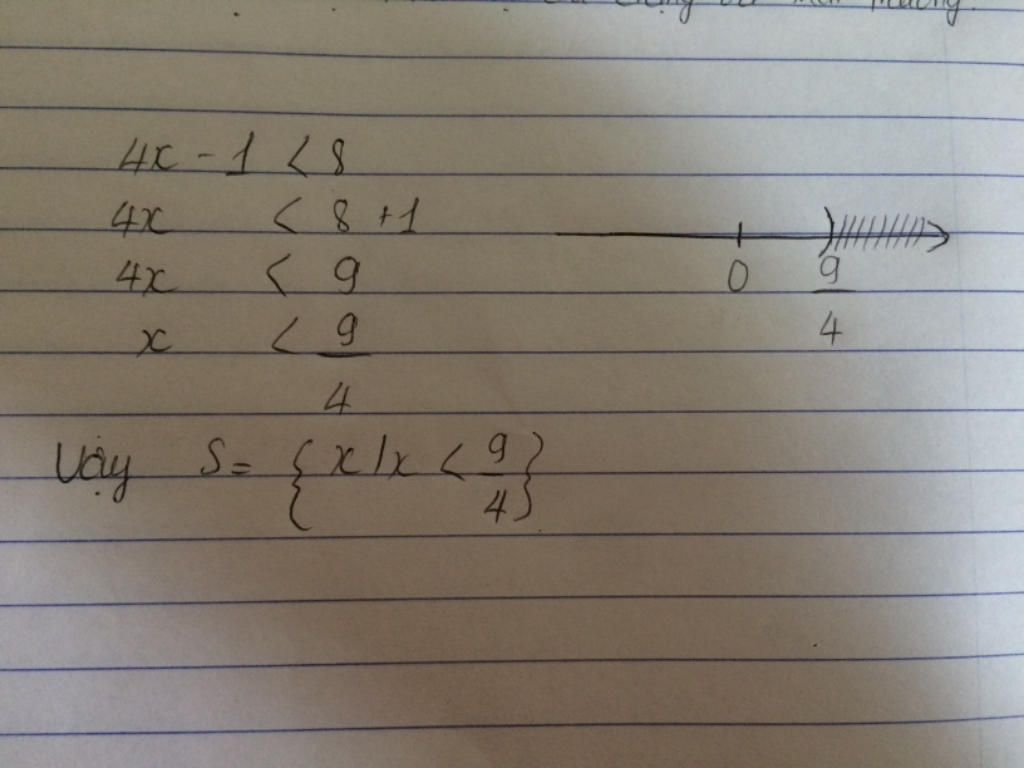 4x - 1 < 8
4x < 8 + 1
4x < 9
x < 9/4
0 9/4
Vậy S = { x | x < 9/4 }